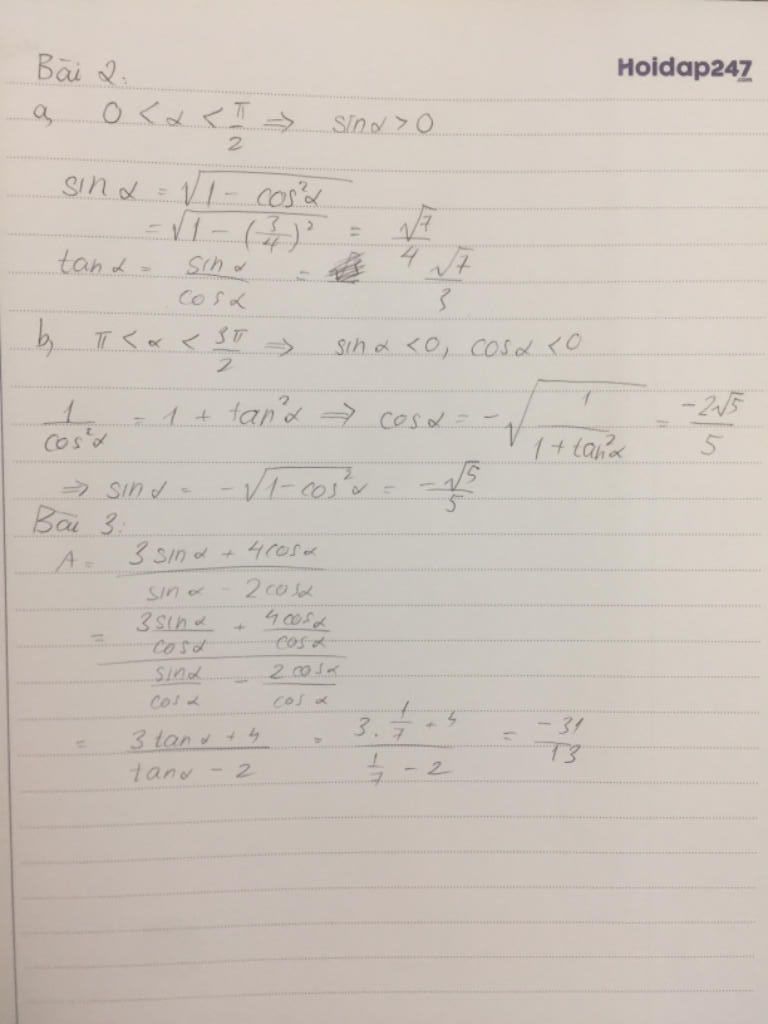 Bài 2:
Hoidap247.com
a, 0 < α < π/2 ⇒ sinα > 0
sin α = √(1 - cos²α)
= √(1 - (3/4)²) = √7/4
tanα = sinα/cosα = √7/3
b, π < α < 3π/2 ⇒ sinα < 0, cosα < 0
1/cos²α = 1 + tan²α ⇒ cosα = -√(1/(1 + tan²α)) = -2√5/5
⇒ sinα = -√(1 - cos²α) = -√5/5
Bài 3:
A = (3 sinα + 4cosα)/(sinα - 2cosα)
= (3sinα/cosα + 4cosα/cosα)/(sinα/cosα - 2cosα/cosα)
= (3tanα + 4)/(tanα - 2) = (3. 1/7 + 4)/(1/7 - 2) = -31/13